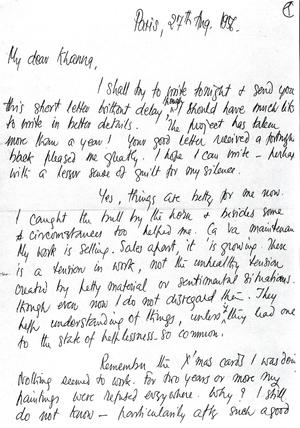 Paris, 27th Aug. 1956.
1
My dear Khanna,
I shall try to write tonight & send you
this short letter without delay, though I should have much liked
to write in better details. The project has taken
more than a year! Your good letter received a fortnight
back pleased me greatly. I hope I can write – perhaps
with a lesser sense of guilt for my silence.
Yes, things are better for me now.
I caught the bull by the horns & besides some
circumstances too helped me. Ca va maintenant
My work is selling. Sales apart, it is growing. There
is a tension in work, not the unhealthy tension
created by petty material or sentimental situations.
though even now I do not disregard them. They
help understanding of things, unless they lead one
to the state of helplessness – so common.
Remember the X'mas cards I was doing
Nothing seemed to work. For two years or more my
paintings were refused everywhere. Why? I still
do not know – particularly after such a good